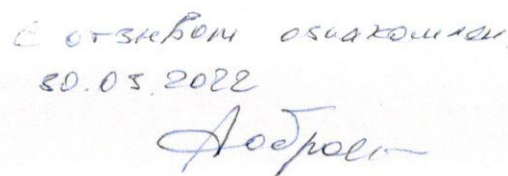 С отзывом ознакомлен.
30.05.2022